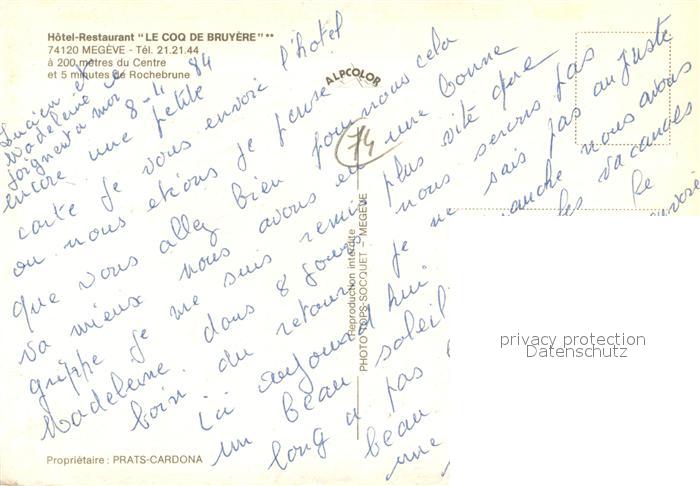 Hôtel-Restaurant "LE COQ DE BRUYÈRE"**
74120 MEGÈVE - Tél. 21.21.44
à 200 mètres du Centre
et 5 minutes de Rochebrune
ALPCOLOR
74
Lucien et
Madeleine se
joignent a moi
8-4 84
encore une petite
carte je vous envoie l'hotel
ou nous etions je pense
que vous allez bien pour nous cela
va mieux nous avons eu une bonne
grippe je me suis remis plus vite que
Madeleine dans 8 jours nous serons pas
loin du retour je ne sais pas au juste
ici aujourd'hui manche nous avons
un beau soleil les vacances
long a pas le
beau
une
Reproduction interdite
PHOTO COPS-SOCQUET - MEGÈVE
Propriétaire : PRATS-CARDONA
privacy protection
Datenschutz